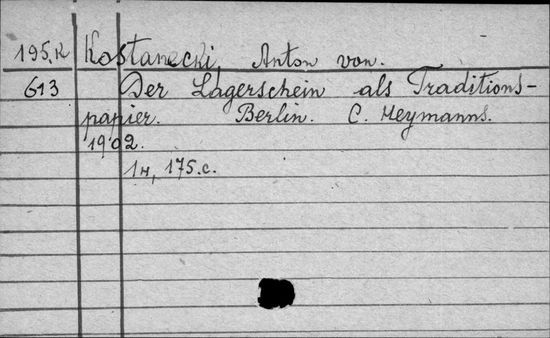 195.K Kostanecki, Anton von.
613 Der Lagerschein als Traditions-
papier. Berlin. C. Heymanns.
1902.
1н, 175.c.